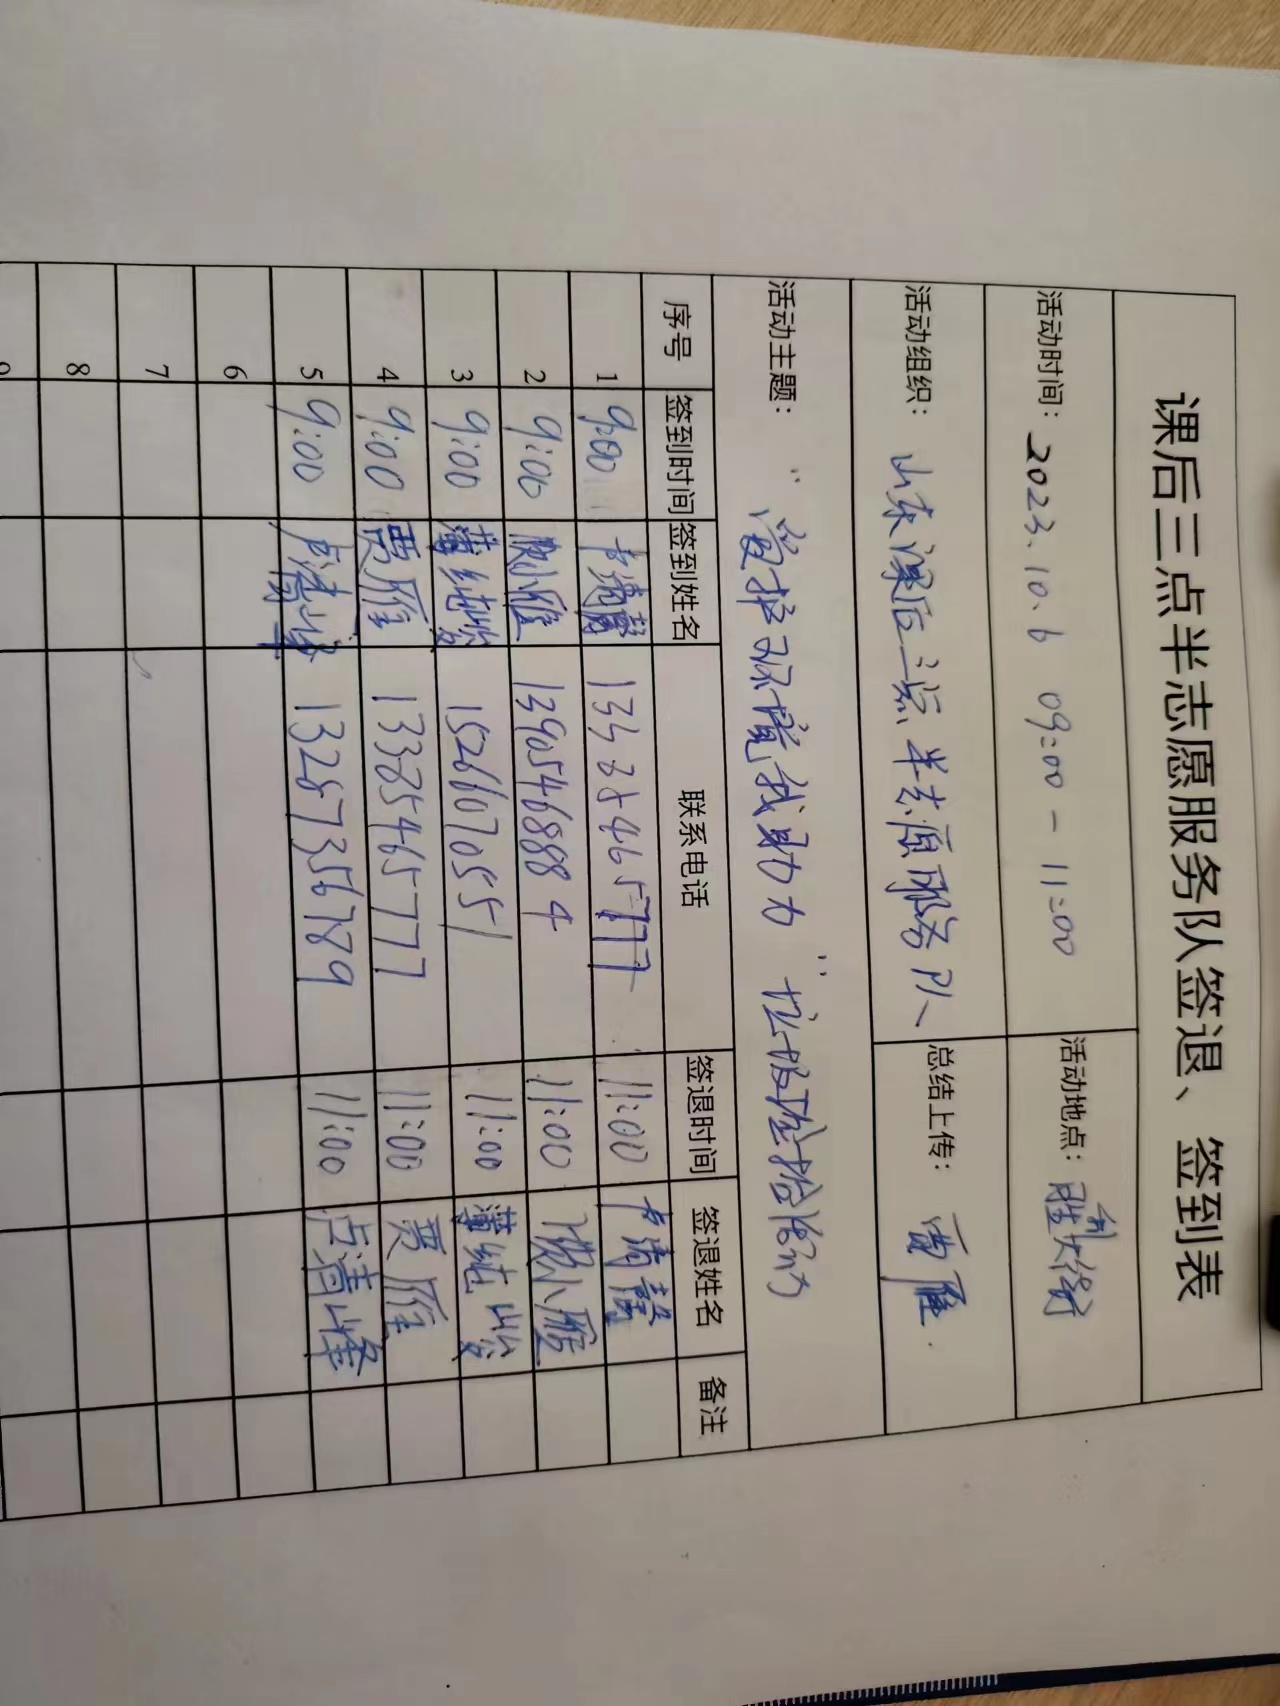 课后三点半志愿服务队签退、签到表
活动时间：2023.10.6 09:00-11:00 活动地点：胜利大街
活动组织：山东课后三点半志愿服务队 总结上传：贾雁
活动主题："爱护环境我助力" 垃圾捡拾活动
序号 签到时间 签到姓名 联系电话 签退时间 签退姓名 备注
1 9:00 11:00
2 9:00 13905468884 11:00
3 9:00 15266107055 11:00
4 9:00 贾雁 13385465777 11:00 贾雁
5 9:00 卢清峰 13287356789 11:00 卢清峰
6
7
8